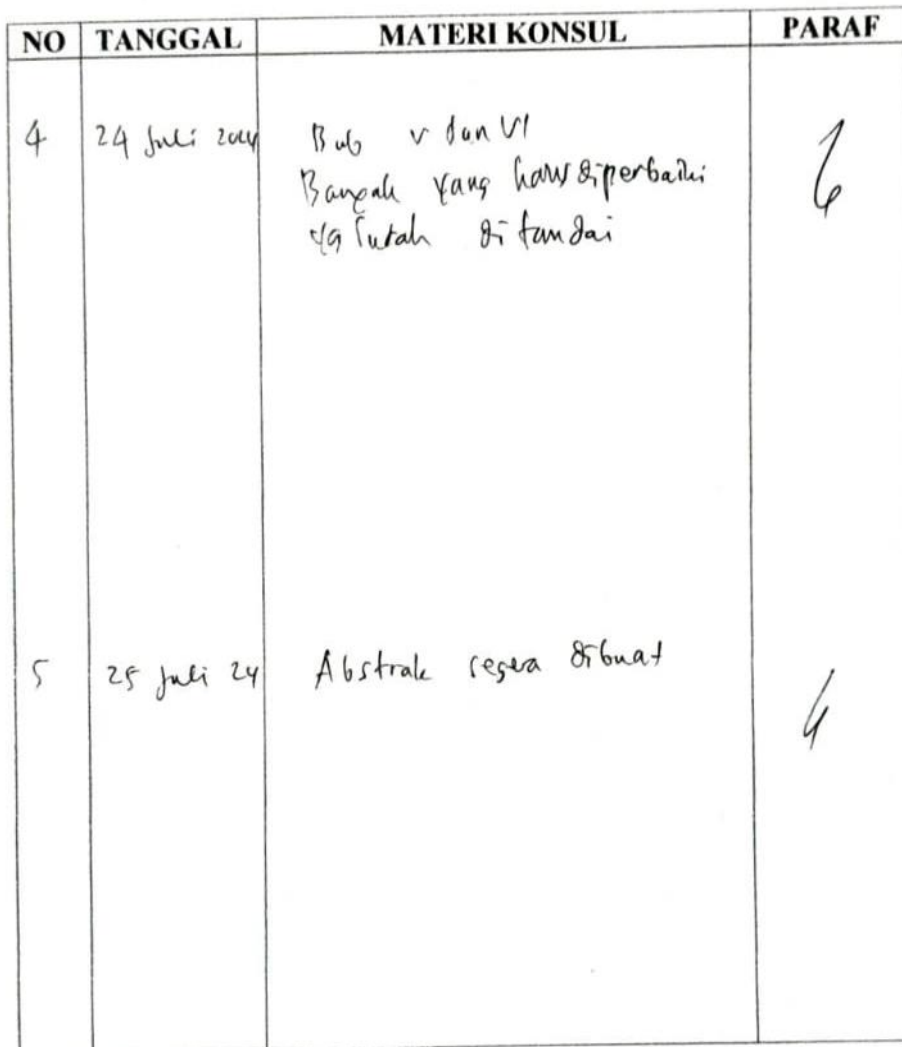 NO TANGGAL MATERI KONSUL PARAF
4 24 Juli 2024 Bab V dan VI
Banyak yang harus diperbaiki
yg sudah ditandai
5 25 Juli 24 Abstrak segera dibuat